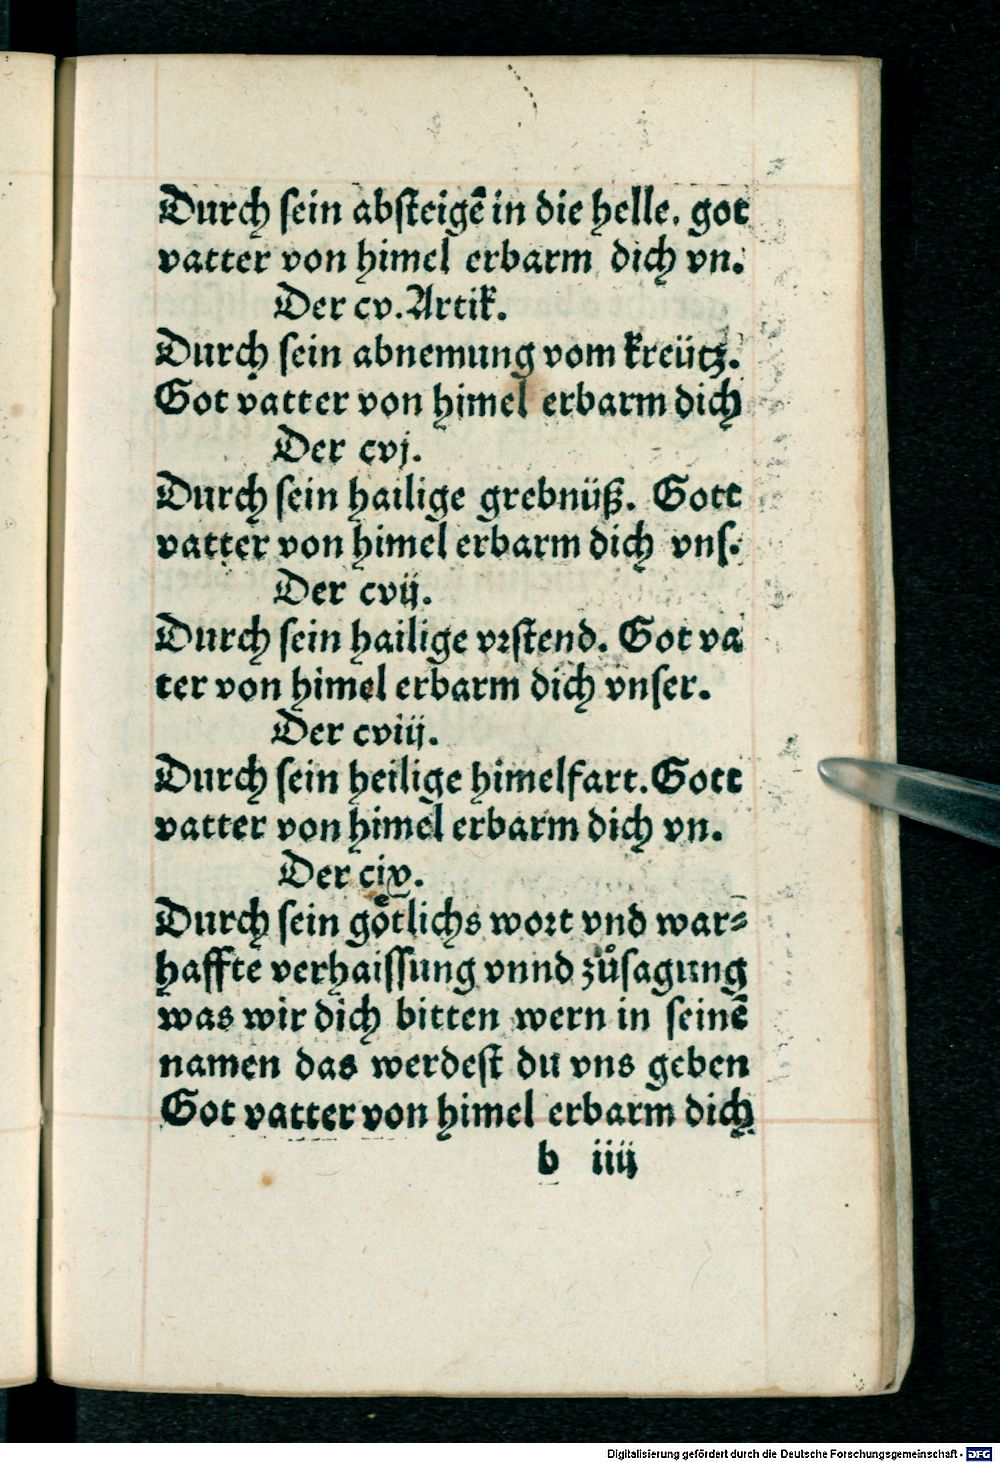 Durch sein absteigē in die helle. got
vatter von himel erbarm dich vn.
Der cv. Artik.
Durch sein abnemung vom kreütz.
Got vatter von himel erbarm dich
Der cvj.
Durch sein hailige grebnüß. Gott
vatter von himel erbarm dich vns.
Der cvij.
Durch sein hailige vrstend. Got va
ter von himel erbarm dich vnser.
Der cviij.
Durch sein heilige himelfart. Gott
vatter von himel erbarm dich vn.
Der cix.
Durch sein goͤtlichs wort vnd war⸗
haffte verhaissung vnnd zuͦsagung
was wir dich bitten wern in seinē
namen das werdest du vns geben
Got vatter von himel erbarm dich
b iiij
Digitalisierung gefördert durch die Deutsche Forschungsgemeinschaft - DFG